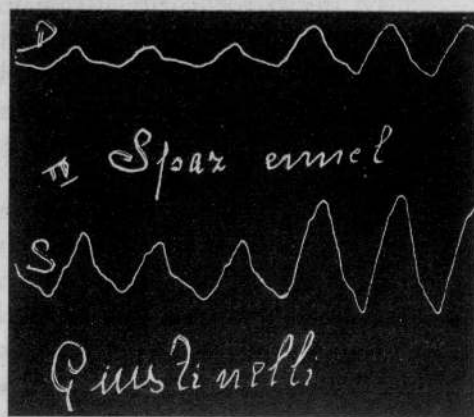 D
IV Spaz emmel
S
Giustinelli